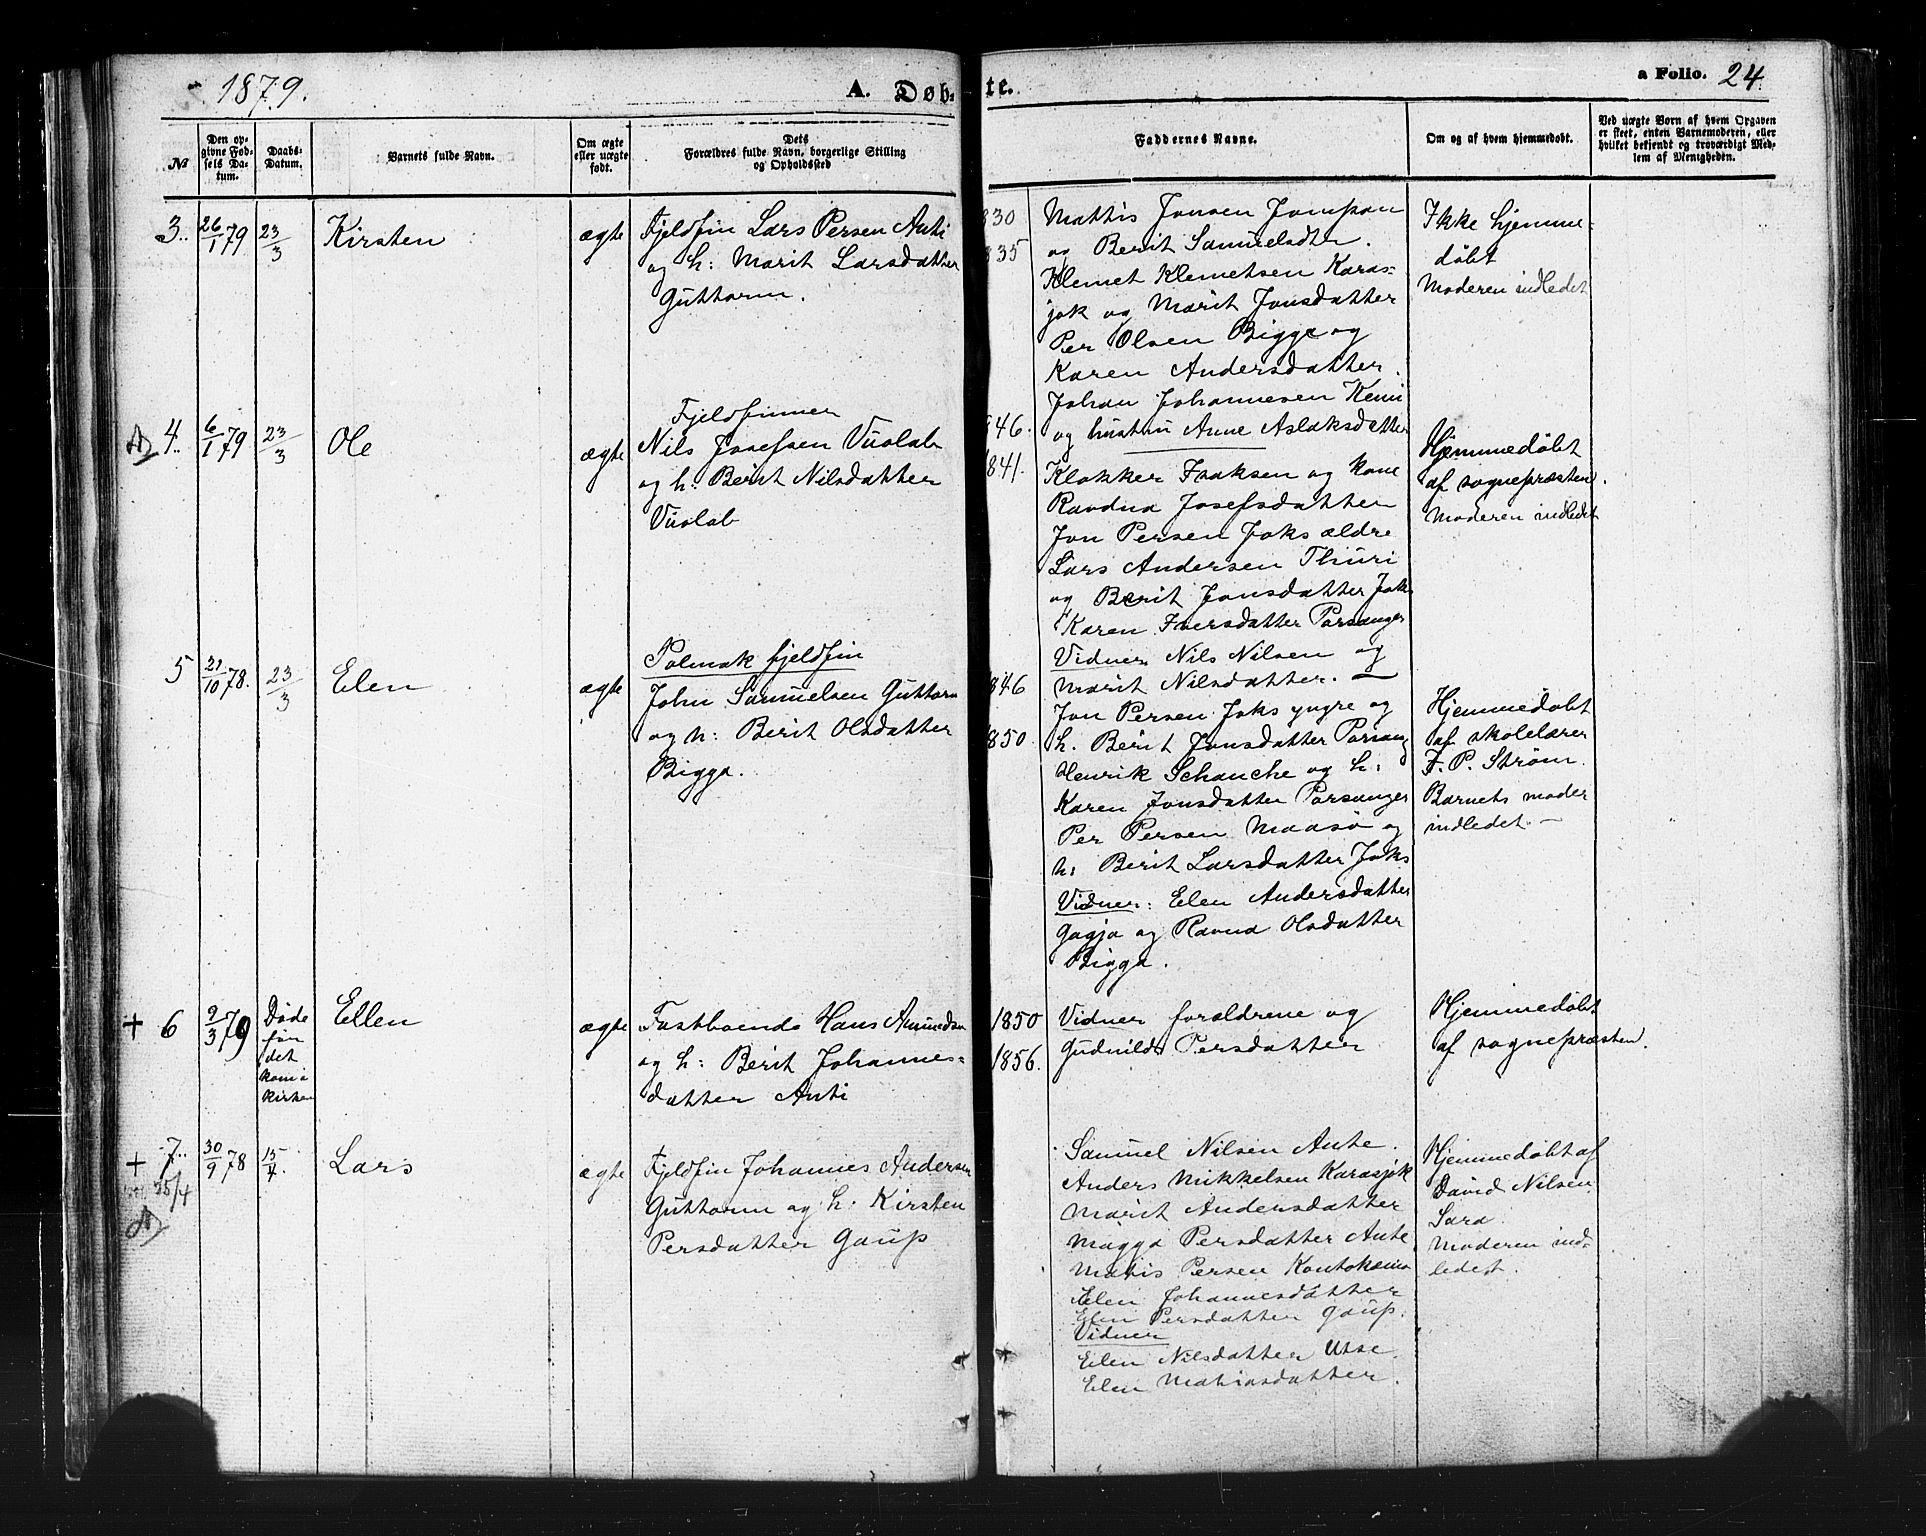 1879.
A. Døb-
te.
a Folio. 24.
No
Den op-
givne Fød-
sels Da-
tum.
Daabs-
Datum.
Barnets fulde Navn.
Om ægte
eller uægte
født.
Dets
Forældres fulde Navn, borgerlige Stilling
og Opholdssted
Faddernes Navne.
Om og af hvem hjemmedøbt.
Ved uægte Born af hvem Opgaven
er skeet, enten Barnemoderen, eller
hvilket bekjendt og troværdigt Med-
lem af Menigheden.
3..
26/1 79
23/3
Kirsten
ægte
Fjeldfin Lars Persen Anti
og h: Marit Larsdatter
Guttorm.
830
835
Mattis Jonsen Jompan
og Berit Samuelsdtr.
Klemet Klemetsen Karas-
jok og Marit Jonsdatter
Per Olsen Bigga og
Karen Andersdatter.
Johan Johannesen Kemi
og hustru Anne Aslaksdatter
Ikke hjemme-
døbt
Moderen indledet
4..
6/1 79
23/3
Ole
ægte
Fjeldfinner
Nils Josefsen Vuolab
og h: Berit Nilsdatter
Vuolab
846.
1841.
Klokker Isaksen og kone
Ravdna Josefsdatter
Jon Persen Joks ældre
Lars Andersen Thuri
og Berit Jonsdatter Joks
Karen Iversdatter Porsanger
Vidner Nils Nilsen og
Marit Nilsdatter. —
Hjemmedøbt
af sognepræsten.
Moderen indledet
5
21/10 78.
23/3
Elen
ægte
Polmak fjeldfin
John Samuelsen Guttorm
og h: Berit Olsdatter
Bigga.
846
1850.
Jon Persen Joks yngre og
h. Berit Jonsdatter Porsang
Henrik Schanche og h:
Karen Jonsdatter Porsanger
Per Persen Maasø og
h: Berit Larsdatter Joks
Vidner: Elen Andersdatter
Gagja og Ravna Olsdatter
Bigga.
Hjemmedøbt
af skolelærer
F. P. Strøm.
Barnets moder
indledet —
+ 6
9/3 79
Døde
før
det
kom i
kirken
Ellen
ægte
Fastboende Hans Amundsen
og h: Berit Johannes-
datter Anti
1850
1856.
Vidner forældrene og
Gudnild Persdatter
Hjemmedøbt
af sognepræsten.
+ 7..
25/4
30/9 78
15/4.
Lars
ægte
Fjeldfin Johannes Andersen
Guttorm og h: Kirsten
Persdatter Gaup
Samuel Nilsen Ante.
Anders Mikkelsen Karasjok
Marit Andersdatter
Magga Persdatter Ante
Mathis Persen Kautokeino
Elen Johannesdatter
Elen Persdatter Gaup.
Vidner
Elen Nilsdatter Utse.
Elen Mathiasdatter.
Hjemmedøbt af
David Nilsen
Sara.
Moderen ind-
ledet.